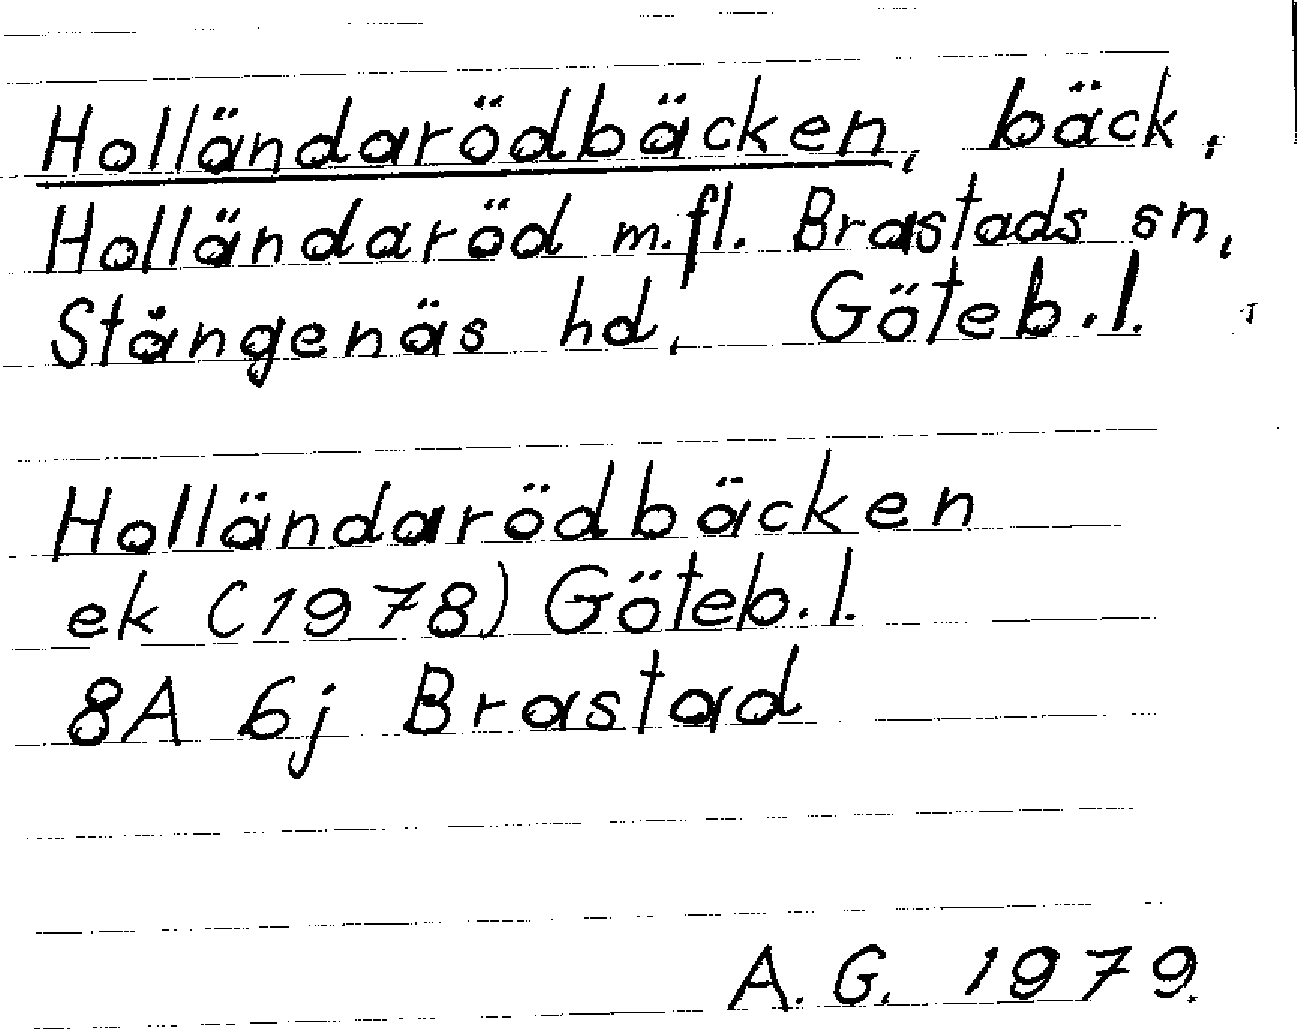 Holländarödbäcken, bäck,
Holländaröd m.fl. Brastads sn,
Stångenäs hd, Göteb.l.
Holländarödbäcken
ek (1978) Göteb.l.
8A 6j Brastad
A.G. 1979.